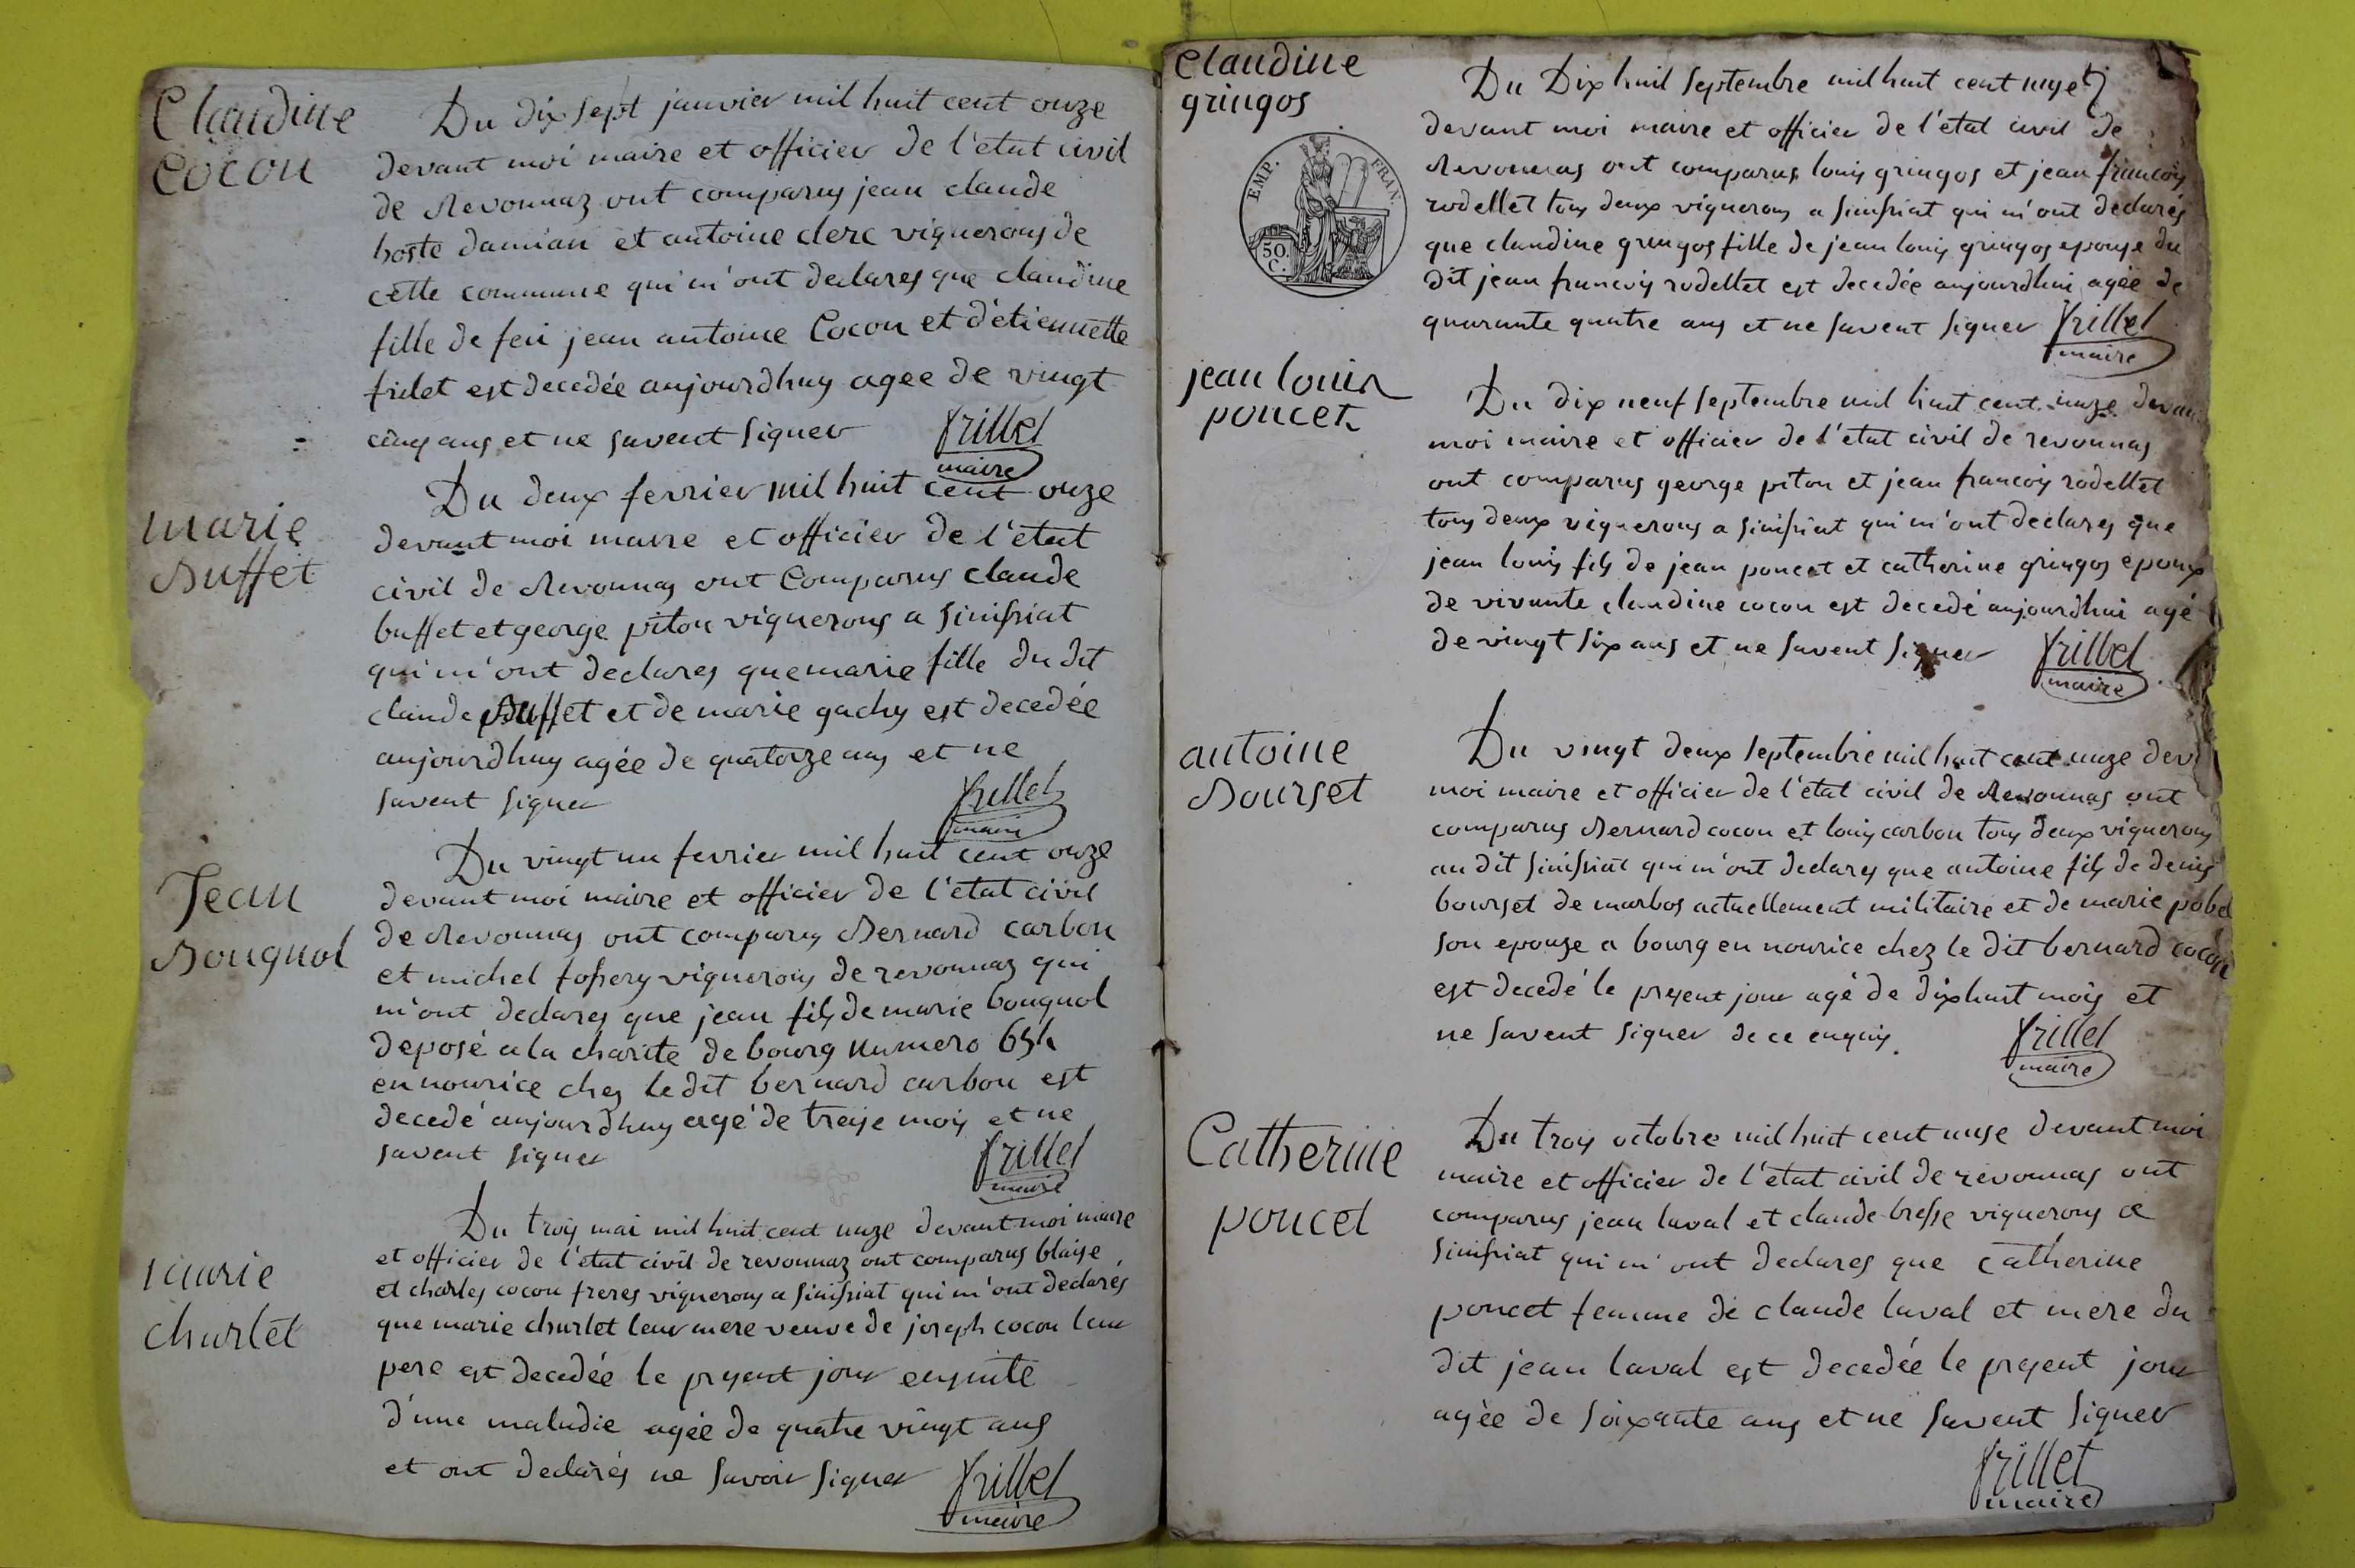 Claudine
Cocon
Du dix sept janvier mil huit cent onze
devant moi maire et officier de l'etat civil
de Revonnaz ont comparus jean claude
hoste damian et antoine clerc vignerons de
cette commune qui m'ont declares que claudine
fille de feu jean antoine Cocon et d'étiennette
frilet est decedée aujourdhuy agee de vingt
cinq ans et ne savent signer
frillet
maire
marie
Buffet
Du deux fevrier mil huit cent onze
devant moi maire et officier de l'état
civil de Revonnas ont Comparus claude
buffet et george piton vignerons a Sinissiat
qui m'ont declares que marie fille du dit
claude Buffet et de marie gachy est decedée
aujourdhuy agée de quatorze ans et ne
savent signer
frillet
maire
Jean
Bouquol
Du vingt un fevrier mil huit cent onze
devant moi maire et officier de l'etat civil
de Revonnas ont comparus Bernard carbon
et michel vignerons de revonnaz qui
m'ont declares que jean fils de marie bouquol
deposé a la charite de bourg numero
en nourice ches le dit bernard carbon est
decedé aujourdhuy agé de treise mois et ne
savent signer
frillet
maire
marie
churlet
Du trois mai mil huit cent unze devant moi maire
et officier de l'état civil de revonnaz ont comparus blaise
et charles cocon freres vignerons a sinissiat qui m'ont declarés
que marie churlet leur mere veuve de joseph cocon leur
pere est decedée le present jour ensuite
d'une maladie agée de quatre vingt ans
et ont declarés ne savoir signer
frillet
maire
Claudine
gringos
EMP. FRAN.
50.
C.
Du Dix huit septembre mil huit cent
devant moi maire et officier de l'état civil de
Revonnas ont comparus louis gringos et jean francois
rodellet tous deux vignerons a sinissiat qui m'ont declarés
que claudine gringos fille de jean louis gringos epouse du
dit jean francois rodellet est decedée aujourdhui agée de
quarante quatre ans et ne savent signer
frillet
maire
jean louis
poncet
Du dix neuf septembre mil huit cent unze devan
moi maire et officier de l'état civil de revonnas
ont comparus george piton et jean francois rodellet
tous deux vignerons a sinissiat qui m'ont declares que
jean louis fils de jean poncet et catherine gringos epoux
de vivante claudine cocon est decedé aujourdhui agé
de vingt six ans et ne savent signer
frillet
maire
antoine
Bourset
Du vingt deux septembre mil huit cent unze dev
moi maire et officier de l'état civil de Revonnas ont
comparus Bernard cocon et louis carbon tous deux vignerons
au dit sinissiat qui m'ont declares que antoine fils de denis
bourset de marbos actuellement militaire et de marie pobel
son epouse a bourg en nourice chez le dit bernard cocon
est decedé le present jour agé de dixhuit mois et
ne savent signer de ce enquis.
frillet
maire
Catherine
poncet
Du trois octobre mil huit cent unse devant moi
maire et officier de l'état civil de revonnas ont
comparus jean laval et claude bresse vignerons a
sinissiat qui m'ont declares que Catherine
poncet femme de claude laval et mere du
dit jean laval est decedée le present jour
agée de soixante ans et ne savent signer
frillet
maire